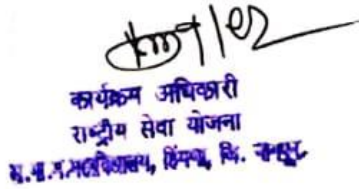 कार्यक्रम अधिकारी
राष्ट्रीय सेवा योजना
महाविद्यालय, हिंगणा, जि. नागपूर.